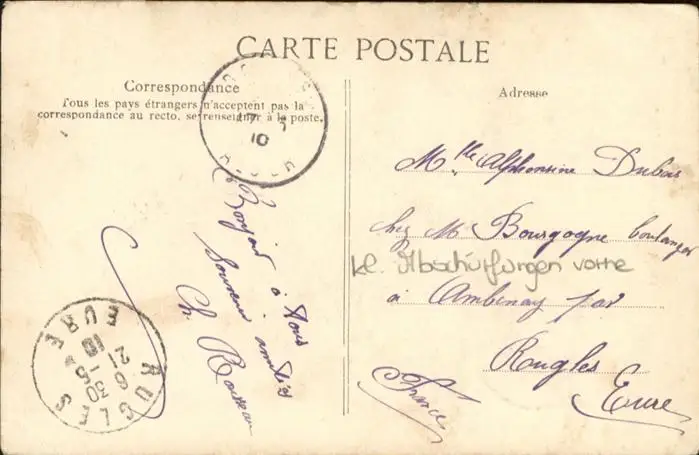 CARTE POSTALE
Correspondance
Tous les pays étrangers n'acceptent pas la
correspondance au recto, se renseigner à la poste.
Adresse
Bonjour à tous
Souvenir
Ch. Rousseau
Mlle Alphonsine Dubus
chez Mr Bourgogne boulanger
kl. Abschürfungen vorne
à Ambenay par
Rugles
Eure
(France)
10
RUGLES
EURE